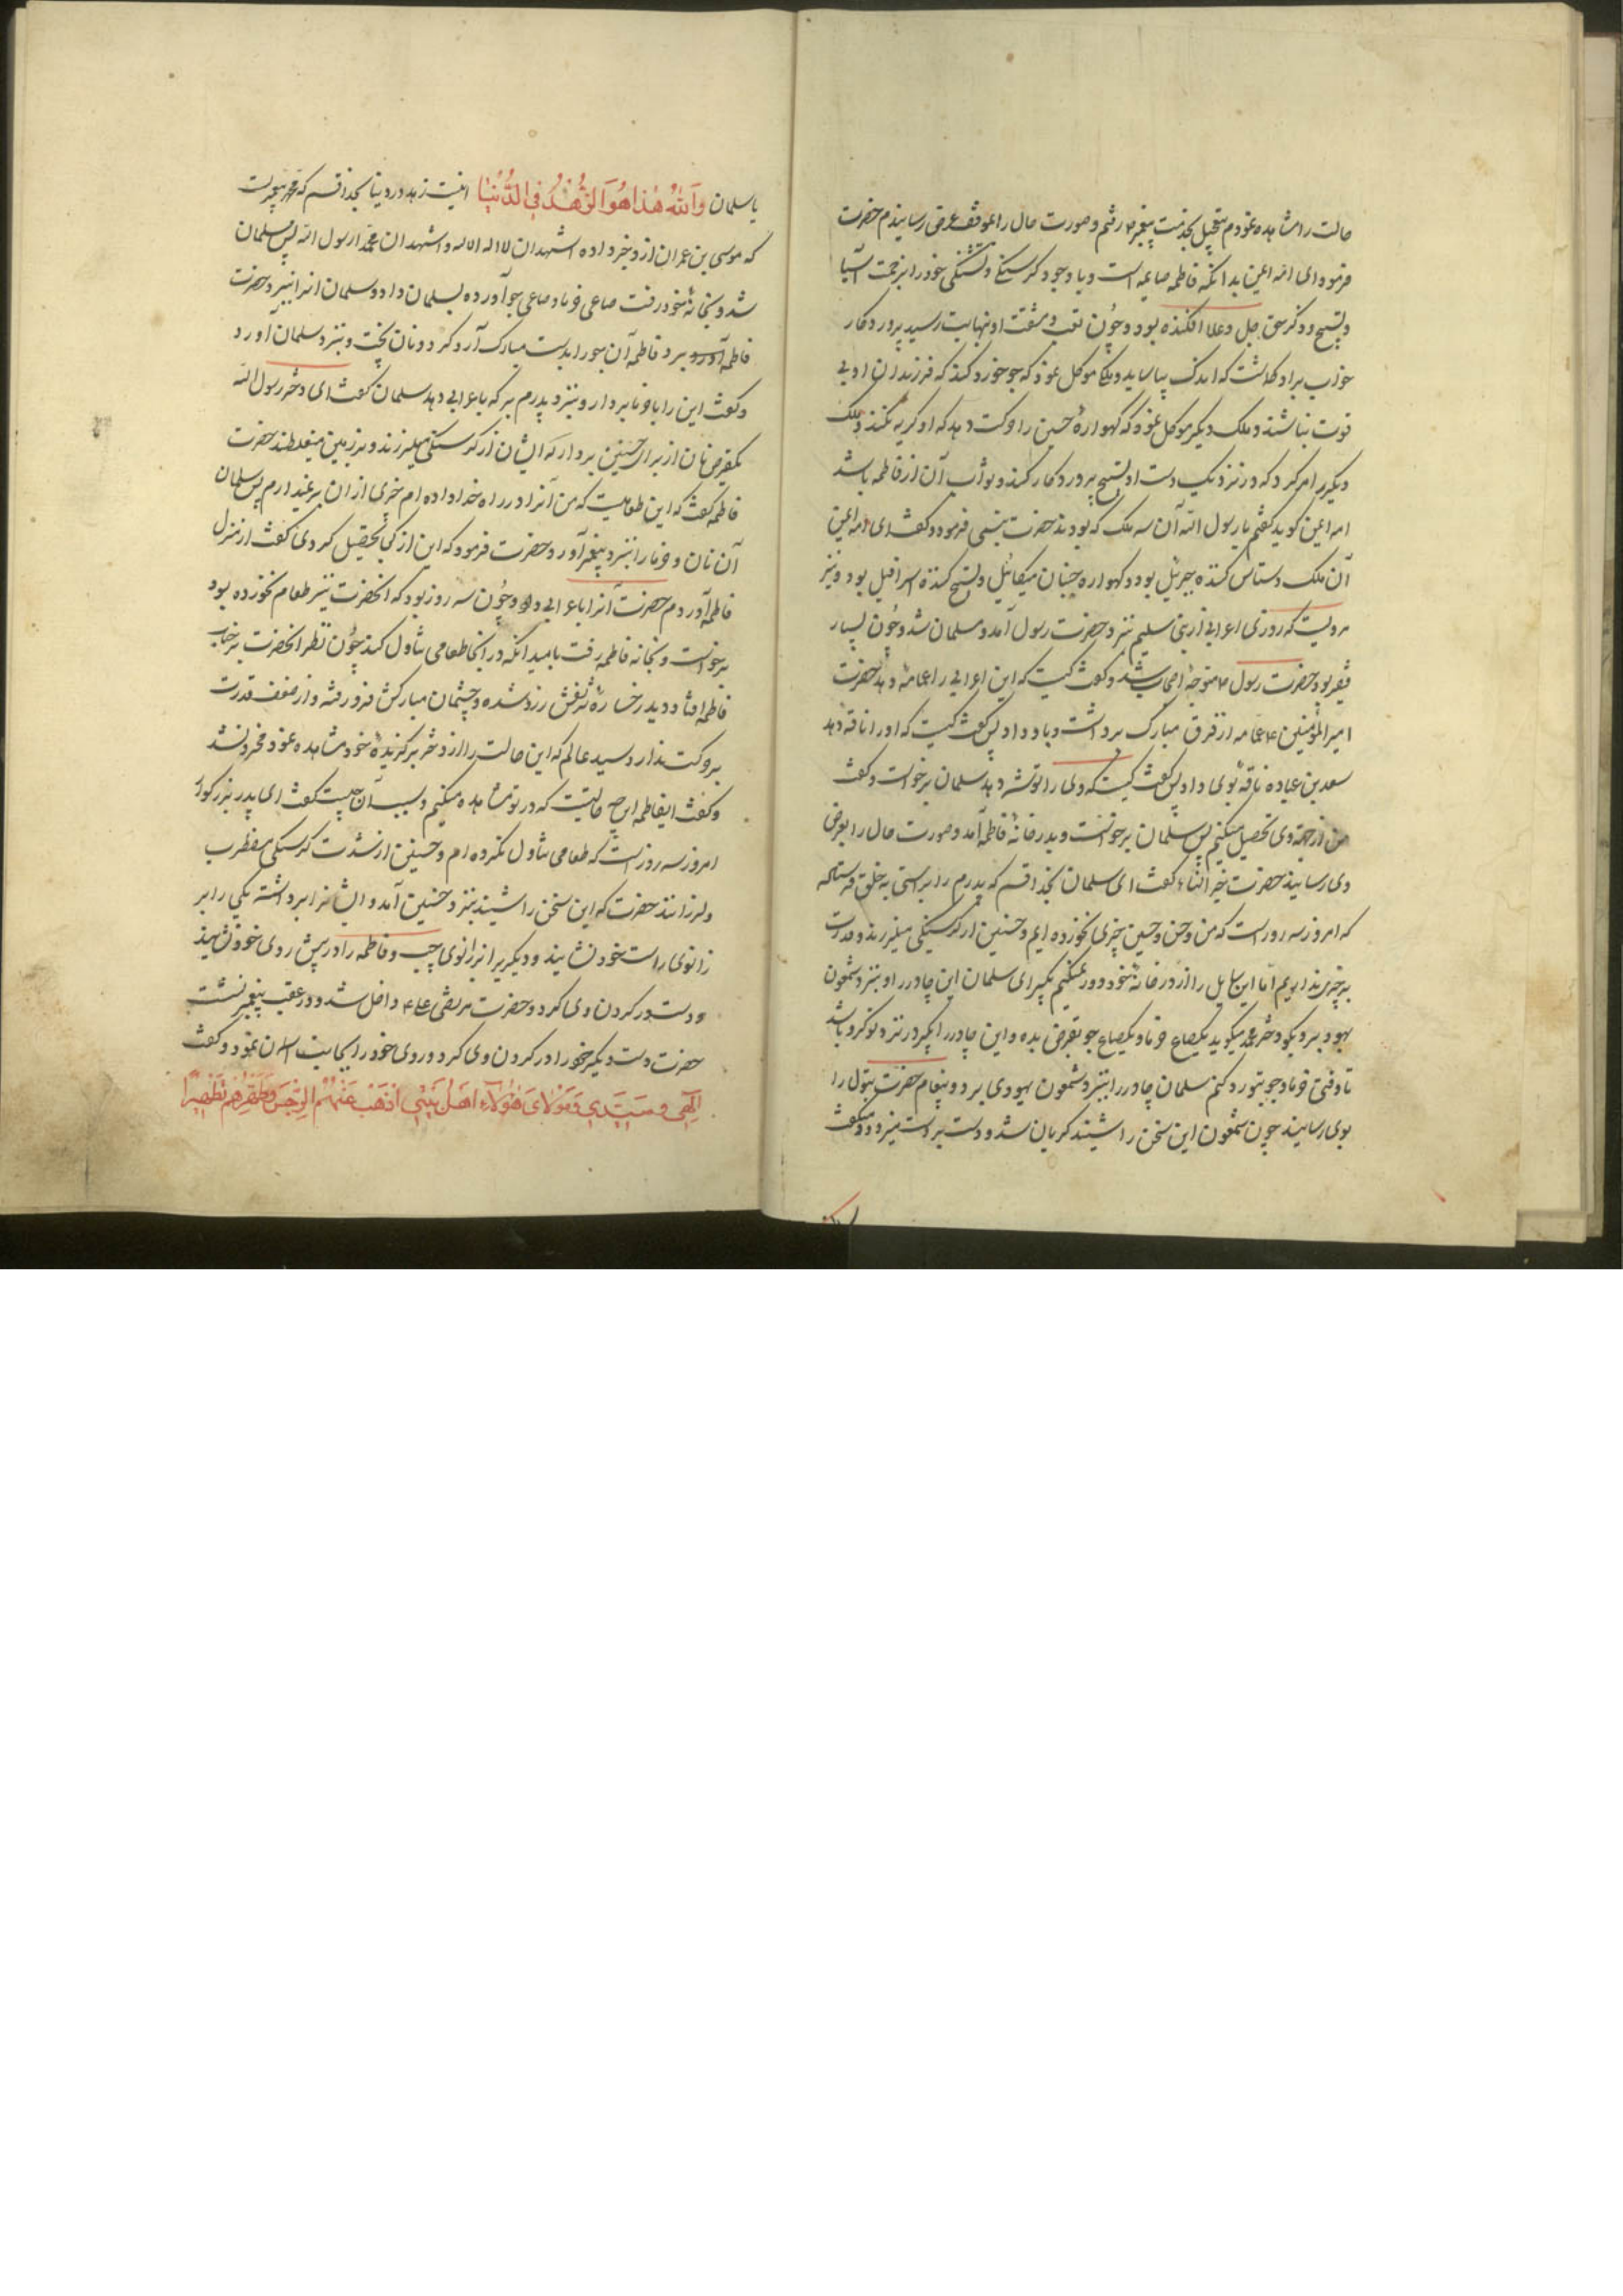 حالت را مشاهده نمودم بتعجیل بخدمت پیغمبر رفتم و صورت حال را بموقف عرض رسانیدم حضرت
فرمود ای ام ایمن بدانکه فاطمه صایمه است و با وجود گرسنگی و تشنگی خود را بزحمت آسیا
و تسبیح و ذکر حق جل و علا افکنده بود و چون تعب و مشقت او بنهایت رسید پروردگار
خواب بر او گماشت که اندک بیاساید و ملکی موکل نمود که جو خورد کند که فرزندان او بی
قوت نباشند و ملک دیگر موکل نمود که گهواره حسین را حرکت دهد که او گریه نکند و ملک
دیگریرا امر کرد که در نزدیک دست او تسبیح پروردگار کند و ثواب آن از فاطمه باشد
ام ایمن گوید گفتم یا رسول الله آن سه ملک که بودند حضرت تبسمی فرمود و گفت ای ام ایمن
آن ملک دستاس کننده جبرئیل بود و گهواره جنبان میکائیل و تسبیح کننده اسرافیل بود و نیز
مرویست که روزی اعرابی از بنی سلیم بنزد حضرت رسول آمد و مسلمان شد و چون بسیار
فقیر بود حضرت رسول متوجه اصحاب شد و گفت کیست که این اعرابی را عمامه دهد حضرت
امیر المؤمنین عمامه از فرق مبارک برداشت و باو داد پس گفت کیست که او را ناقه دهد
سعد بن عباده ناقه بوی داد پس گفت کیست که وی را توشه دهد سلمان برخواست و گفت
من از جهة وی تحصیل میکنم پس سلمان برخواست و بدر خانه فاطمه آمد و صورت حال را بعرض
وی رسانید حضرت خیر النساء گفت ای سلمان بخدا قسم که پدرم را براستی به خلق فرستاده
که امروز سه روز است که من و حسن و حسین چیزی نخورده ایم و حسنین از گرسنگی میلرزند و قدرت
بچیزی نداریم اما این سایل را از در خانه خود دور نمیکنیم بگیر ای سلمان این چادر را و بنزد شمعون
یهود ببر و بگو دختر محمد میگوید یکصاع خرما و یکصاع جو بقرض بده و این چادر را بگیر در نزد تو گرو باشد
تا وقتی خرما و جو بتو رد کنم سلمان چادر را بنزد شمعون یهودی برد و پیغام حضرت بتول را
بوی رسانید چون شمعون این سخن را شنید گریان شد و دست بر دست میزد و میگفت
یا سلمان وَاللّٰهُ هٰذا هُوَ الزُّهْدُ فِی الدُّنْیٰا اینست زهد در دنیا بخدا قسم که محمد پیغمبریست
که موسی بن عمران از و خبر داده اشهد ان لا اله الا الله و اشهد ان محمدا رسول الله پس مسلمان
شد و بخانه خود رفت صاعی خرما و صاعی جو آورده بسلمان داد و سلمان انرا بنزد حضرت
فاطمه برد فاطمه آن جو را بدست مبارک آرد کرد و نان پخت و بنزد سلمان آورد
و گفت این را با خرما بردار و بنزد پدرم بر که باعرابی دهد سلمان گفت ای دختر رسول الله
یکقرص نان از برای حسنین بردار که ایشان از گرسنگی میلرزند و بر زمین میغلطند حضرت
فاطمه گفت که این طعامیست که من آنرا در راه خدا داده ام چیزی از ان بر نمیدارم پس سلمان
آن نان و خرما را بنزد پیغمبر آورد حضرت فرمود که این از کجا تحصیل کردی گفت از منزل
فاطمه آوردم حضرت آنرا باعرابی داد و چون سه روز بود که انحضرت نیز طعام نخورده بود
برخواست و بخانه فاطمه رفت بامید آنکه در انجا طعامی تناول کند چون نظر انحضرت بر جناب
فاطمه افتاد دید رخساره شریفش زرد شده و چشمان مبارکش فرو رفته و از ضعف قدرت
بر حرکت ندارد سید عالم که این حالت را از دختر برگزیده خود مشاهده نمود محزون شد
و گفت ایفاطمه این چه حالتیست که در تو مشاهده میکنیم و سبب آن چیست گفت ای پدر بزرگوار
امروز سه روز است که طعامی تناول نکرده ام و حسنین از شدت گرسنگی مضطرب
و لرزانند حضرت که این سخن را شنید بنزد حسنین آمد و ایشانرا برداشته یکی را بر
زانوی راست خود نشانید و دیگریرا بر زانوی چپ و فاطمه را در پیش روی خود نشانید
و دست در گردن وی کرد و حضرت مرتضی علی داخل شد و در عقب پیغمبر نشست
حضرت دست دیگر خود را در گردن وی کرد و روی خود را بجانب اسمان نمود و گفت
اِلٰهِی وَ سَیِّدِی وَ مَوْلٰایَ هٰؤُلٰاءِ اَهْلُ بَیْتِی اَذْهِبْ عَنْهُمُ الرِّجْسَ وَ طَهِّرْهُمْ تَطْهِیرًا